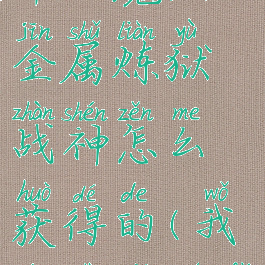 jīn shǔ liàn yù
金属炼狱
zhàn shén zěn me
战神怎么
huò dé de wǒ
获得的(我